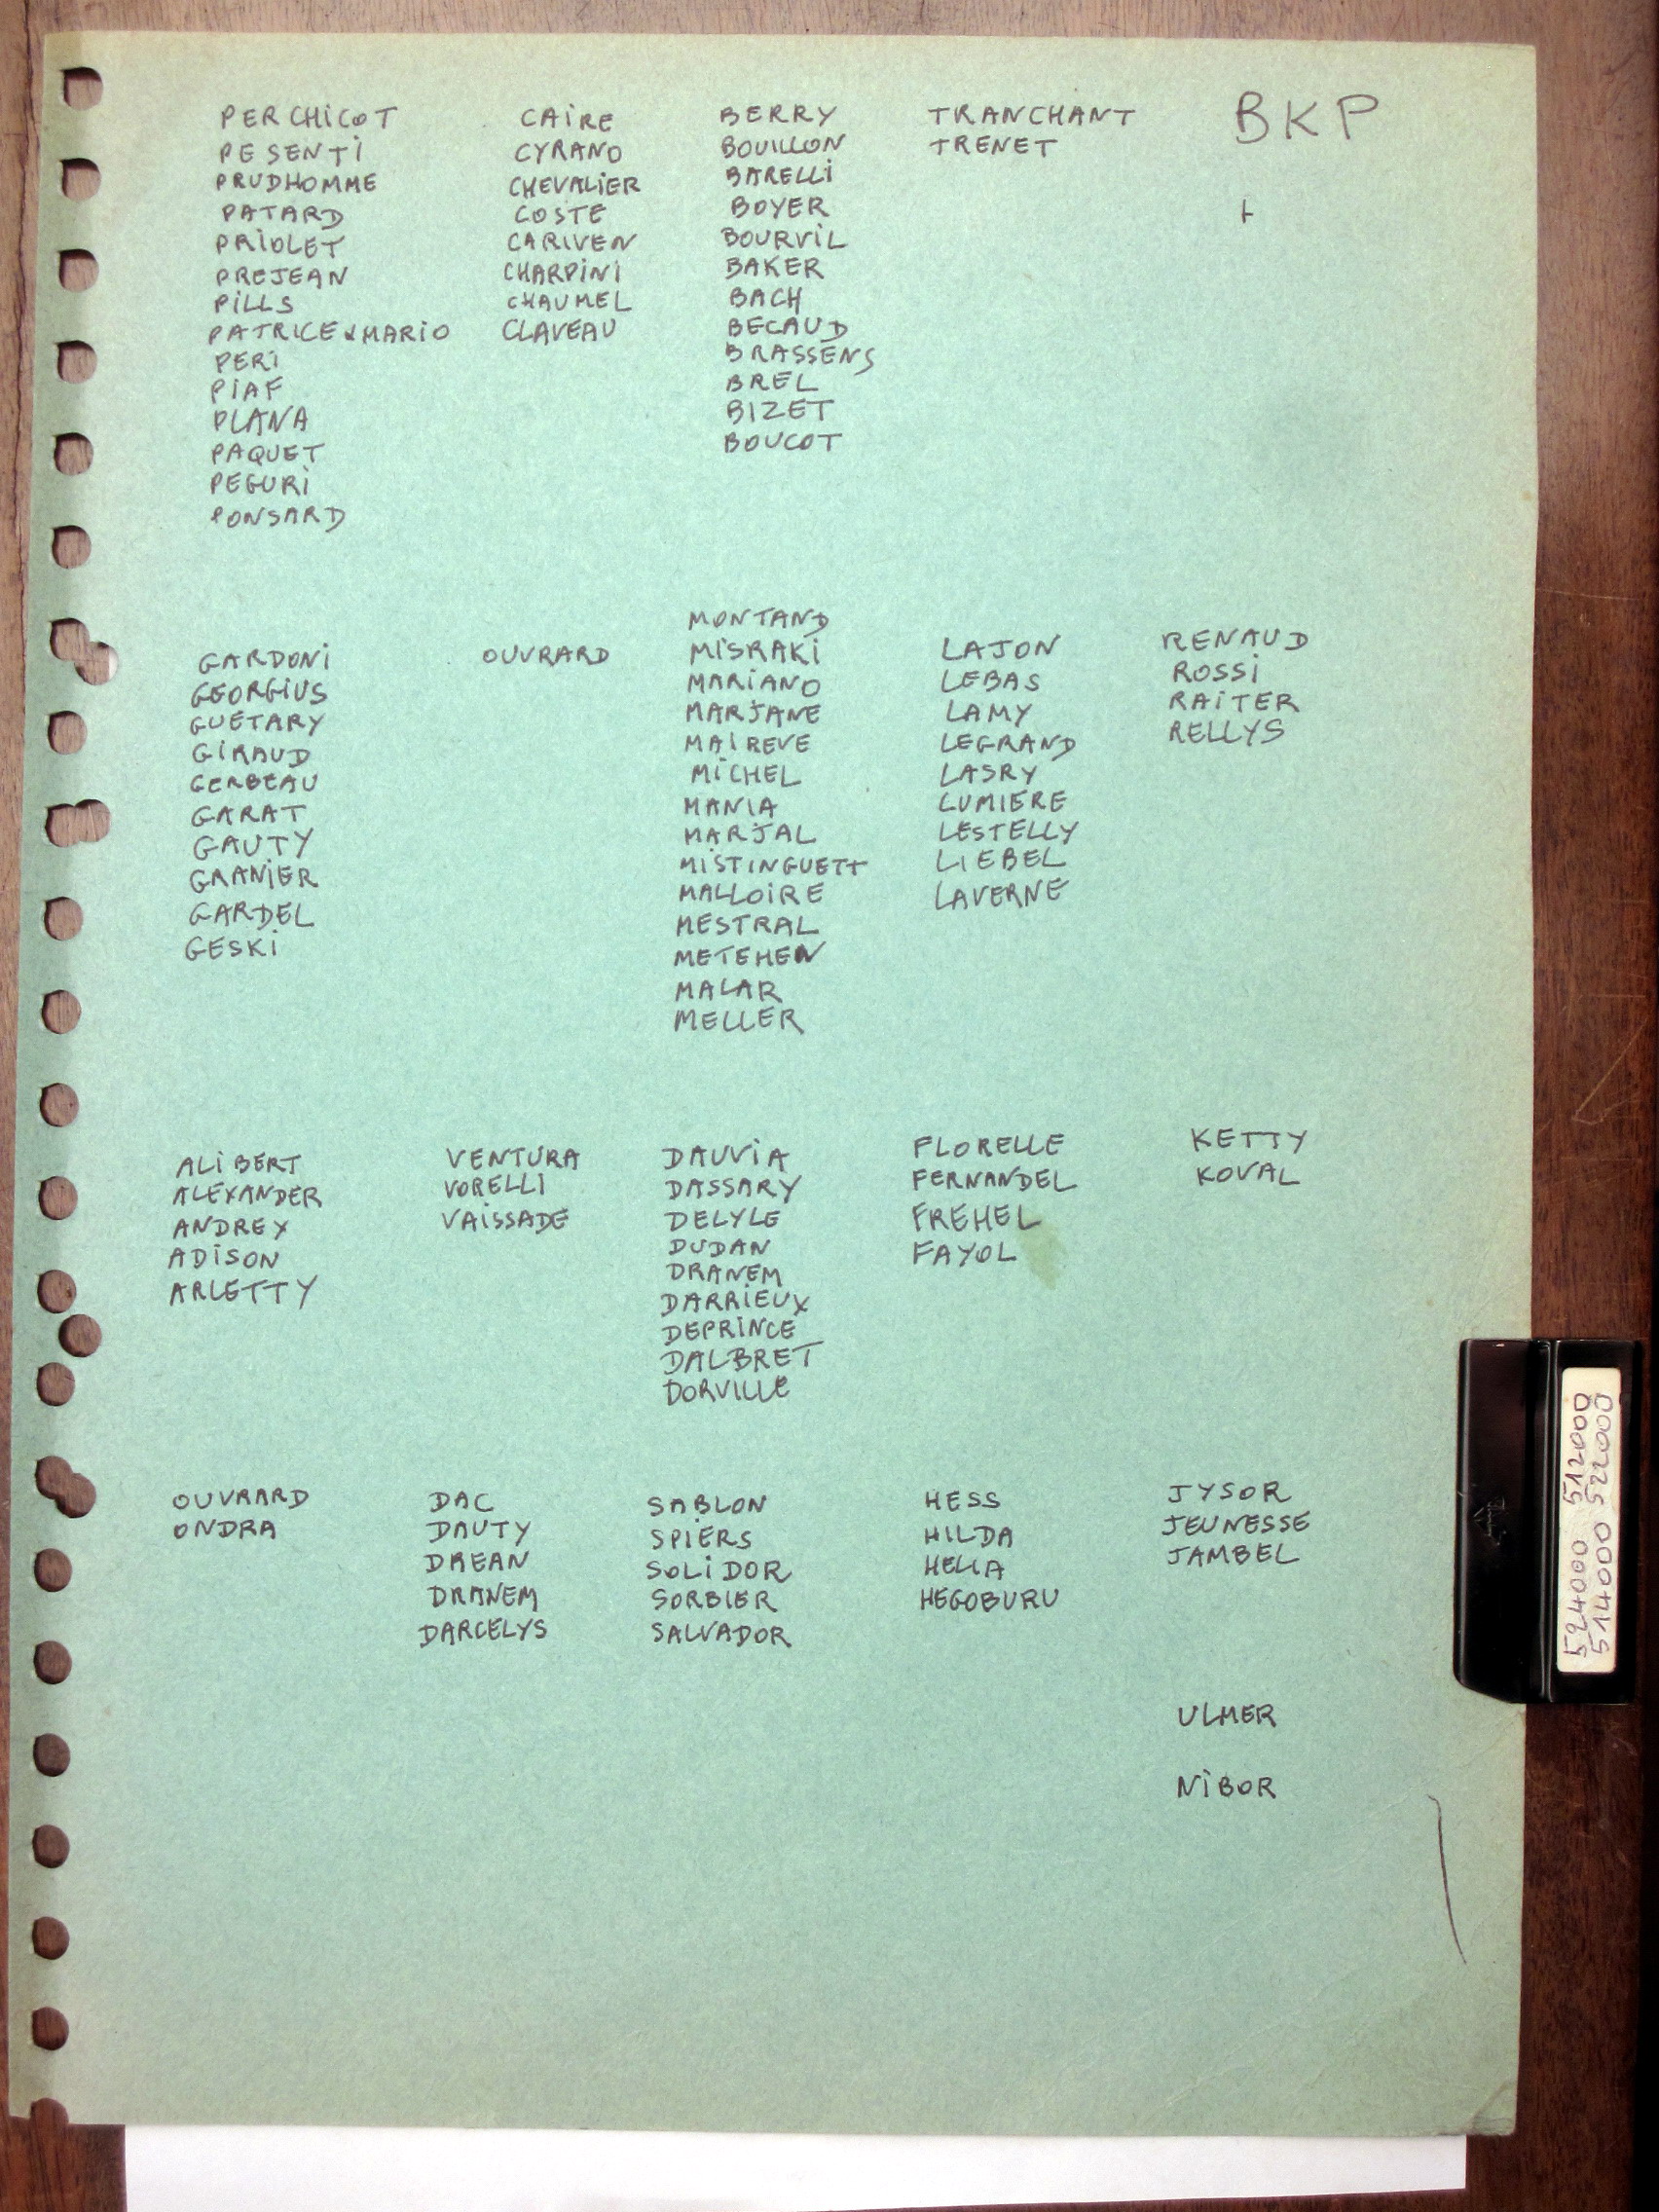 BKP
PERCHICOT
PESENTI
PRUDHOMME
PATARD
PRIOLET
PREJEAN
PILLS
PATRICE & MARIO
PERI
PIAF
PLANA
PAQUET
PEGURI
PONSARD
CAIRE
CYRANO
CHEVALIER
COSTE
CARIVEN
CHARPINI
CHAUMEL
CLAVEAU
BERRY
BOUILLON
BARELLI
BOYER
BOURVIL
BAKER
BACH
BECAUD
BRASSENS
BREL
BIZET
BOUCOT
TRANCHANT
TRENET
GARDONI
GEORGIUS
GUETARY
GIRAUD
GERBEAU
GARAT
GAUTY
GRANIER
GARDEL
GESKI
OUVRARD
MONTAND
MISRAKI
MARIANO
MARJANE
MAIREVE
MICHEL
MANIA
MARJAL
MISTINGUETT
MALLOIRE
MESTRAL
METEHEN
MALAR
MELLER
LAJON
LEBAS
LAMY
LEGRAND
LASRY
LUMIERE
LESTELLY
LIEBEL
LAVERNE
RENAUD
ROSSI
RAITER
RELLYS
ALIBERT
ALEXANDER
ANDREX
ADISON
ARLETTY
VENTURA
VORELLI
VAISSADE
DAUVIA
DASSARY
DELYLE
DUDAN
DRANEM
DARRIEUX
DEPRINCE
DALBRET
DORVILLE
FLORELLE
FERNANDEL
FREHEL
FAYOL
KETTY
KOVAL
OUVRARD
ONDRA
DAC
DAUTY
DREAN
DRANEM
DARCELYS
SABLON
SPIERS
SOLIDOR
SORBIER
SALVADOR
HESS
HILDA
HELIA
HEGOBURU
JYSOR
JEUNESSE
JAMBEL
ULMER
NIBOR
524000 512000
514000 522000